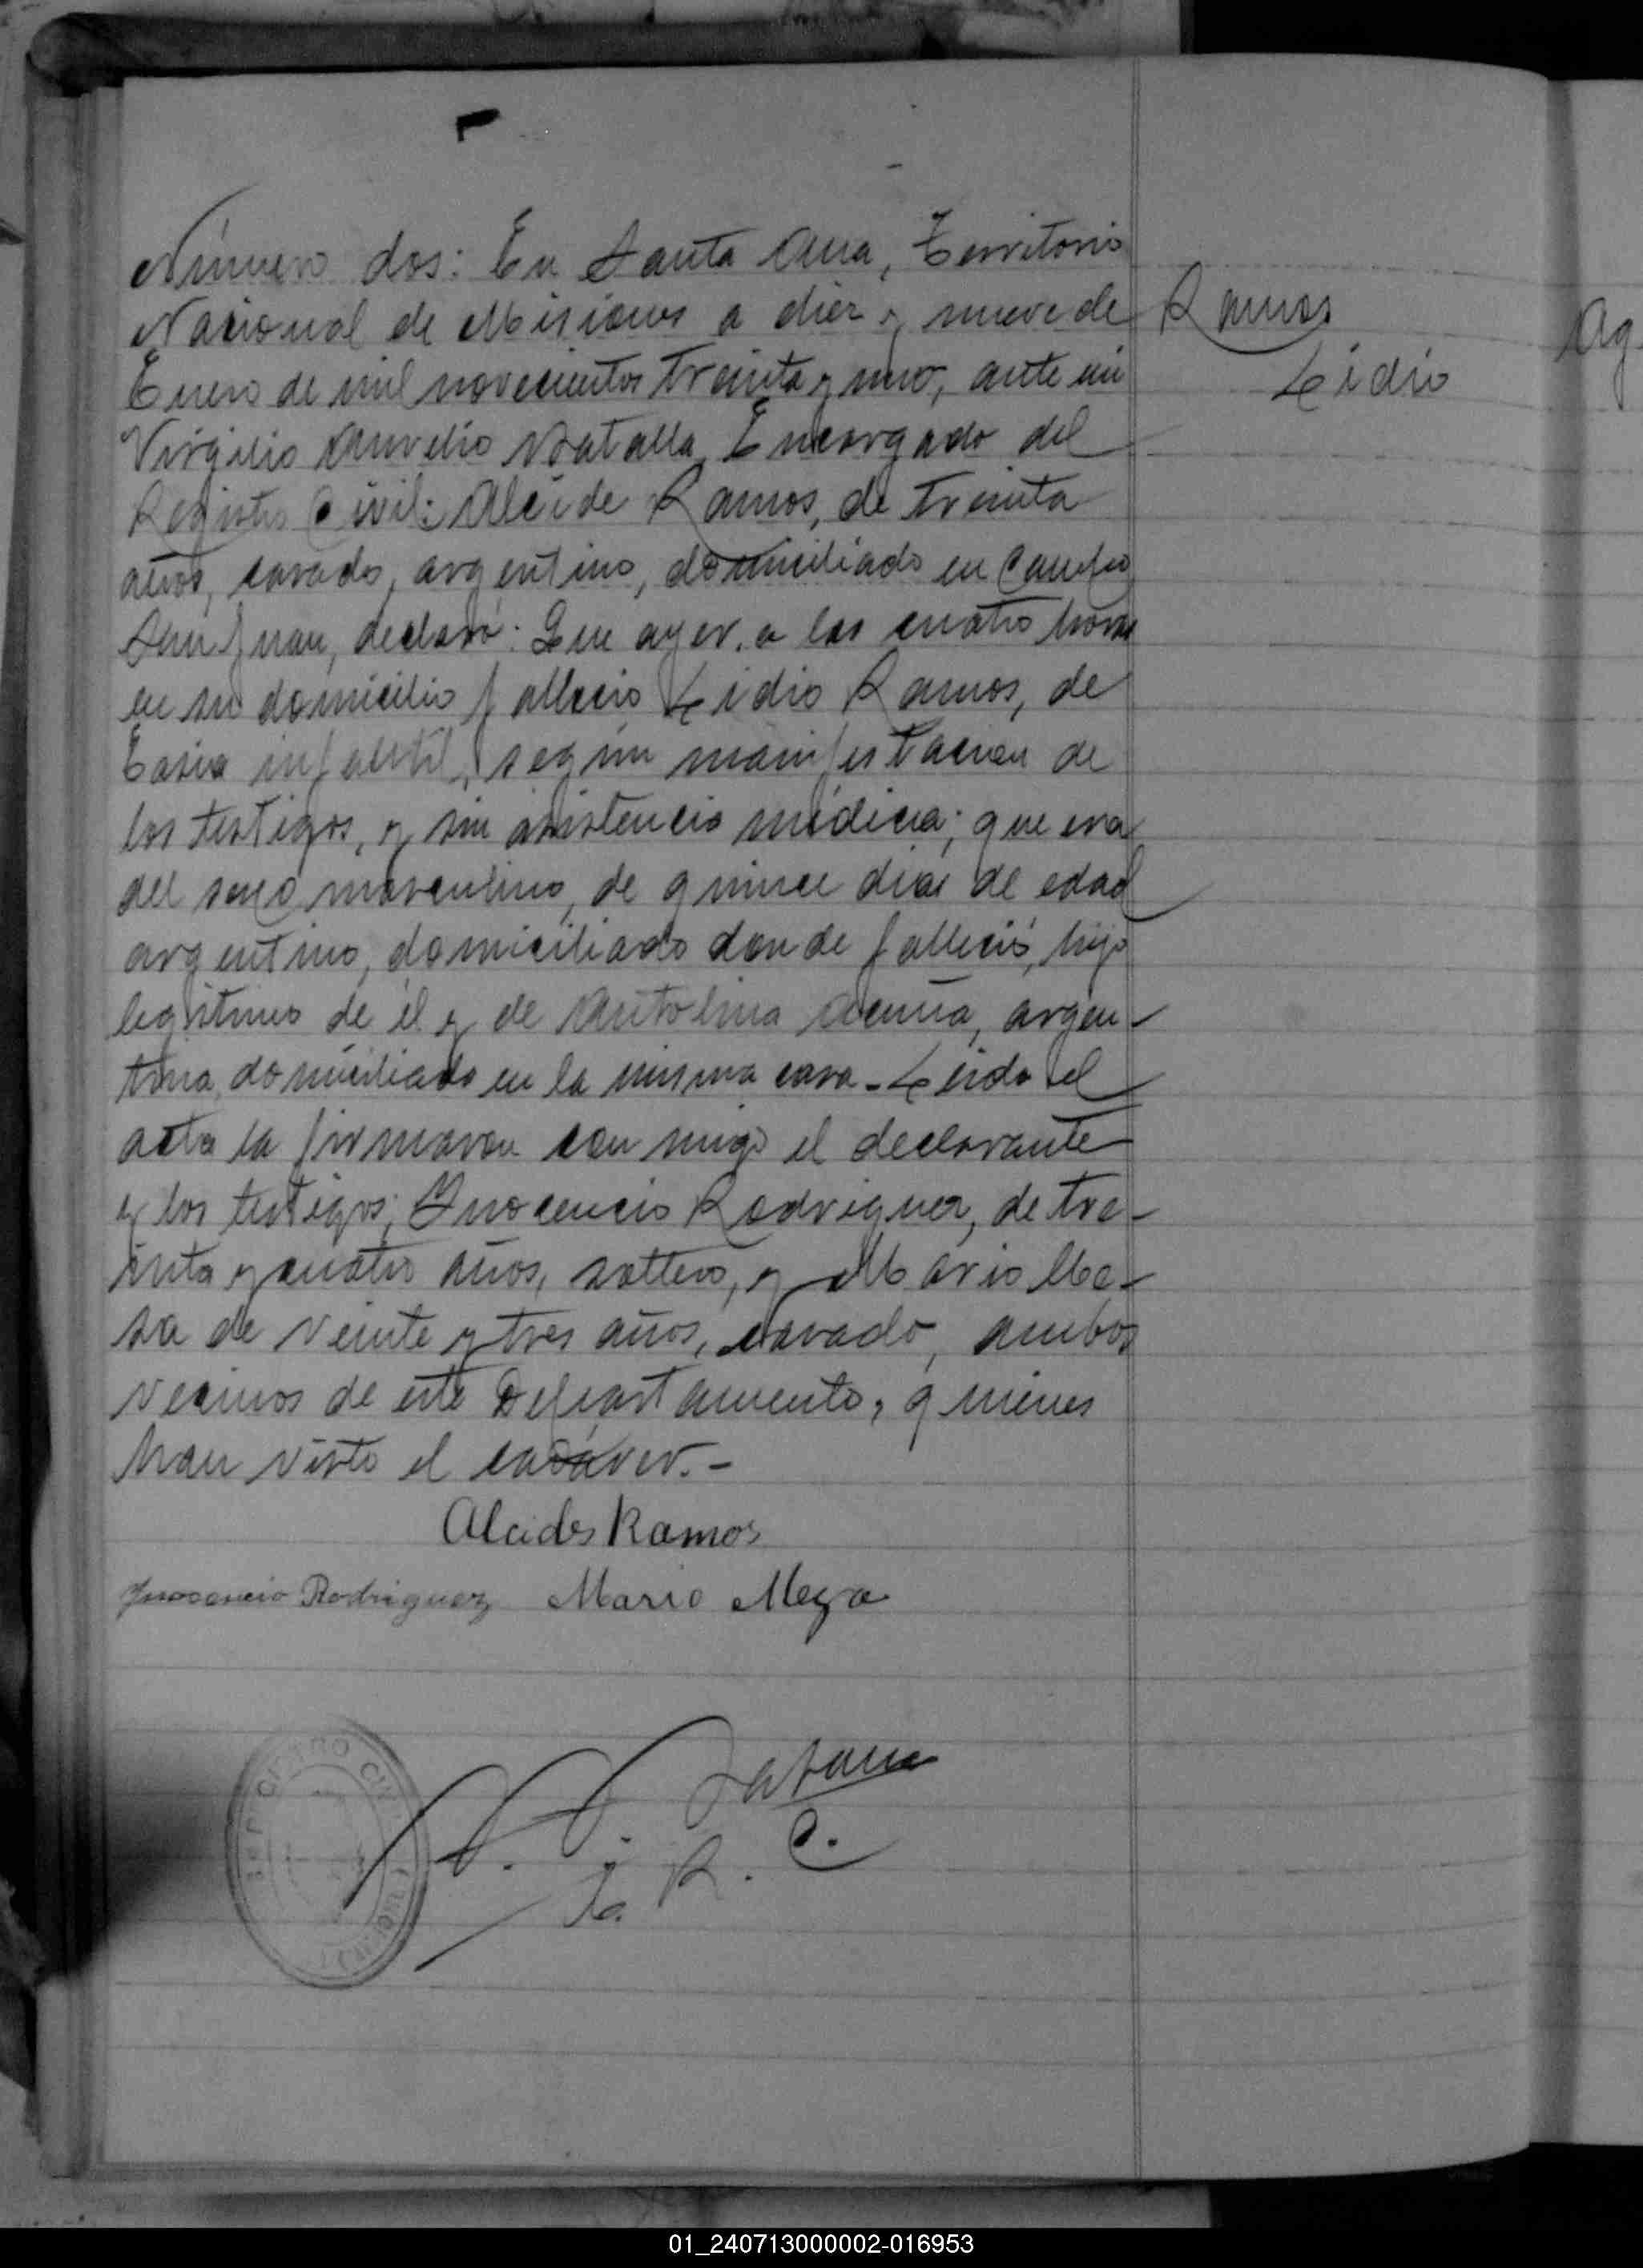 Número dos: En Santa Ana, Territorio
Nacional de Misiones a diez y nueve de
Enero de mil novecientos treinta y uno, ante mi
Virgilio Aurelio Encargado del
Registro Civil: Alcide Ramos, de treinta
años, casado, argentino, domiciliado en Campo
San Juan, declaró: Que ayer, a las cuatro horas
en su domicilio fallecio Lidio Ramos, de
infantil, según manifestacion de
los testigos, y sin asistencia médica; que era
del sexo masculino, de quince dias de edad
argentino, domiciliado donde falleció, hijo
legitimo de él y de Antolina Acuña, argen-
tina, domiciliada en la misma casa.- Leida el
acta la firmaron con migo el declarante
y los testigos; Inocencio Rodriguez, de tre-
inta y cuatro años, soltero, y Mario Me-
sa de veinte y tres años, casado, ambos
vecinos de este Departamento, quienes
han visto el cadáver.-
Alcides Ramos
Inocencio Rodriguez Mario Meza
E. R. C.
REGISTRO CIVIL
Ramos
Lidio
Ag
01_240713000002-016953